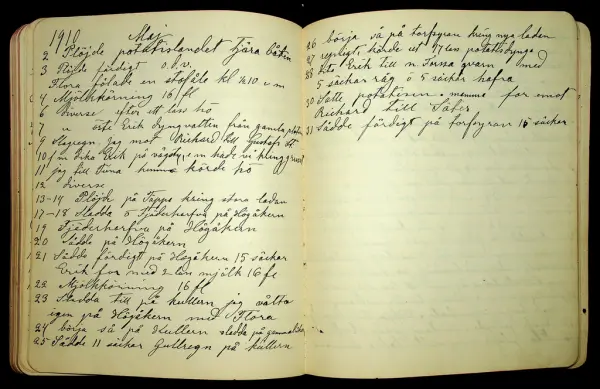 1910 Maj
2 Plöjde potatislandet tjära båten
3 Slöjde färdigt o.d.v.
Flora fölade en stoföle kl ½10 e m
4 Mjölkkörning 16 fl
6 diverse efter ett lass hö
7 u öste Erik dyngvatten från gamla platsen
9 Slagregn, jag mot Richard till Gustafs
10 f.m dika Erik på vägstyc, e.m hade vi kring grusel
11 jag till Tuna hemma körde hö
12 diverse
13-14 Plöjde på Tappe kring stora ladan
17-18 Sladda o Fjäderharfva på Högåkern
19 Fjäderharfva på Högåkern
20 Sådde på Högåkern
21 Sådde färdigt på Högåkern 15 säckar
Erik for med 2 lass mjölk 16 fl
22 Mjölkkörning 16 fl
23 Sladda till på kullern jag välta
igen på Högåkern med Flora
24 börja så på Kullern sladda på gamma
25 Sådde 11 säckar Gullregn på kullern
26 börja så på torfsyran kring nya ladan
27 regnigt, körde ut 17 lass potatisdynga
28 Erik till n. Torsa qvarn med
5 säckar råg o 5 säckar hafra
30 Satte potatisen. mamma for emot
Richard till Säter
31 Sådde färdigt på torfsyran 16 säckar